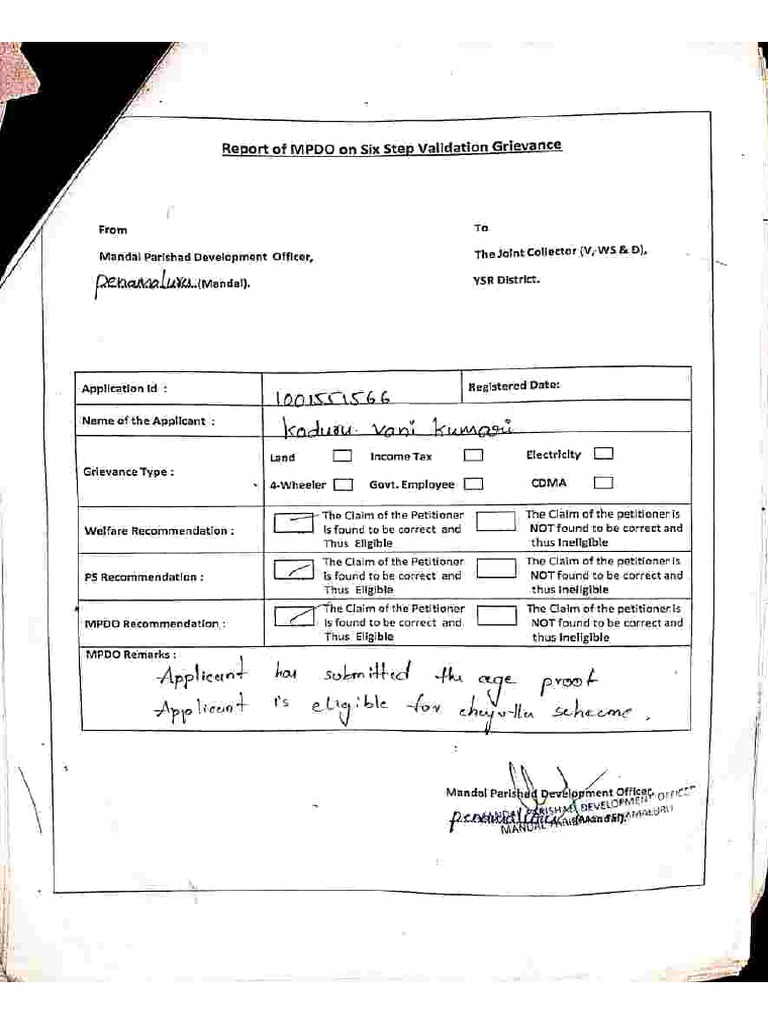 Report of MPDO on Six Step Validation Grievance
From
Mandal Parishad Development Officer,
Penamaluru.(Mandal).
To
The Joint Collector (V, WS & D),
YSR District.
Application Id : 1001551566 Registered Date:
Name of the Applicant : Koduru. Vani Kumari
Grievance Type :
Land Income Tax Electricity
4-Wheeler Govt. Employee CDMA
Welfare Recommendation :
The Claim of the Petitioner
is found to be correct and
Thus Eligible
The Claim of the petitioner is
NOT found to be correct and
thus Ineligible
PS Recommendation :
The Claim of the Petitioner
is found to be correct and
Thus Eligible
The Claim of the petitioner is
NOT found to be correct and
thus Ineligible
MPDO Recommendation :
The Claim of the Petitioner
is found to be correct and
Thus Eligible
The Claim of the petitioner is
NOT found to be correct and
thus Ineligible
MPDO Remarks :
Applicant has submitted the age proof
Applicant is eligible for scheeme.
Mandal Parishad Development Officer,
(Mandal).
MANDAL PARISHAD DEVELOPMENT OFFICER
MANDAL PARISHAD PENAMALURU